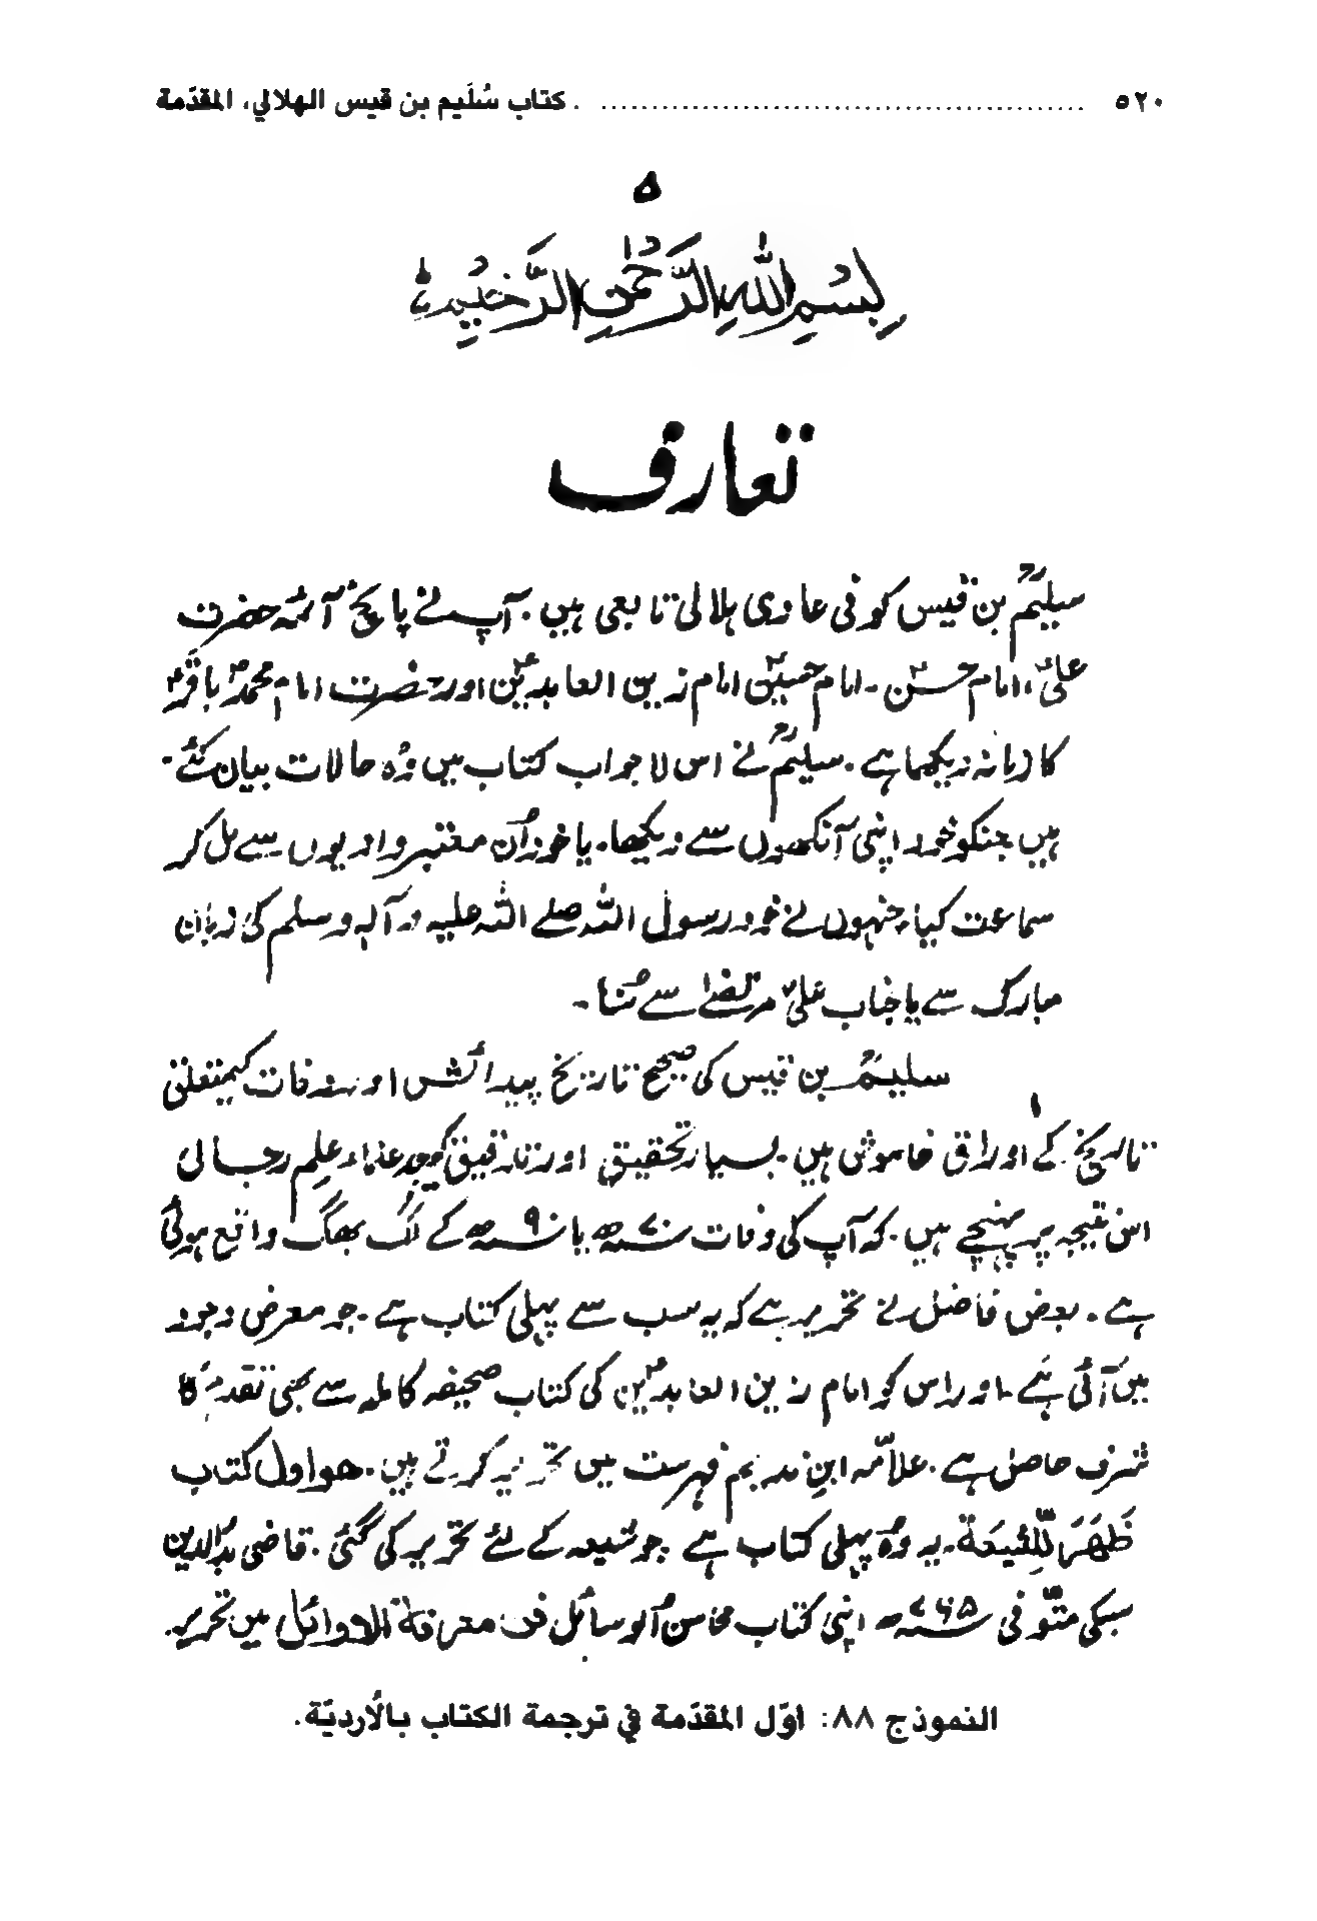 ٥٢٠ ................................................ . كتاب سُلَيم بن قيس الهلالي، المقدّمة
۵
بِسْمِ اللهِ الرَّحْمٰنِ الرَّحِيْمِ
تعارف
سیلیمؒ بن قیس کوفی عاوی ہلالی تابعی ہیں۔ آپ نے پانچ آئمہ حضرت
علیؑ، امام حسنؑ۔ امام حسینؑ امام زین العابدینؑ اور حضرت امام محمد باقرؑ
کا زمانہ دیکھا ہے۔ سیلیمؒ نے اس لاجواب کتاب میں وُہ حالات بیان کئے
ہیں جنکو خود اپنی آنکھوں سے دیکھا۔ یا خود اُن معتبر راویوں سے مل کر
سماعت کیا، جنہوں نے خود رسول اللہ صلے اللہ علیہ و آلہ وسلم کی زبان
مبارک سے یا جناب علیؑ مرتضےٰ سے سُنا۔
سلیمؒ بن قیس کی صحیح تاریخ پیدائش اور وفات کے متعلق
تاریخ کے اوراق خاموش ہیں۔ بسیار تحقیق اور تدقیق کے بعد علماء علم رجال
اس نتیجہ پر پہنچے ہیں۔ کہ آپ کی وفات ۷۰ھ یا ۹۰ھ کے لگ بھگ واقع ہوئی
ہے۔ بعض فاضل نے تحریر ہے کہ یہ سب سے پہلی کتاب ہے۔ جو معرض وجود
میں آئی ہے۔ اور اس کو امام زین العابدینؑ کی کتاب صحیفہ کاملہ سے بھی تقدم کا
شرف حاصل ہے۔ علامّہ ابنِ ندیم فہرست میں تحریر کرتے ہیں۔ هو اول کتاب
ظَهَرَ لِلشِّيعَة۔ یہ وُہ پہلی کتاب ہے جو شیعہ کے لئے تحریر کی گئی۔ قاضی بدرالدین
سبکی متوّفی ۷۶۵ھ اپنی کتاب محاسن الوسائل فی معرفة الاوائل میں تحریر
النموذج ٨٨: أوّل المقدّمة في ترجمة الكتاب بالأرديّة.